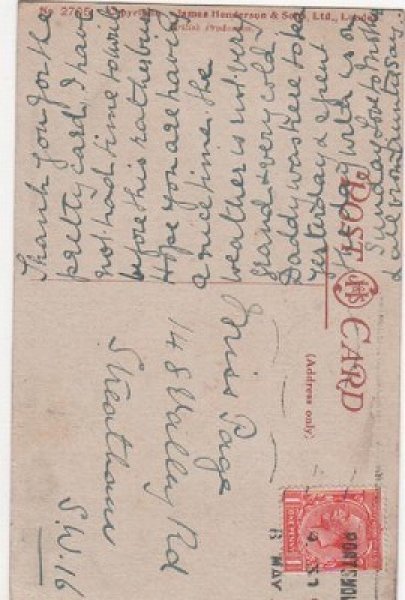 No 2765 Copyright James Henderson & Sons, Ltd., London
British Production
POST CARD
(Address only)
Thank you for the
pretty card. I have
not had time to write
before this rather busy
Hope you are having
a nice time. the
weather is not very
grand & very cold
Daddy was here to tea
yesterday & spent
the day
Sunday love to
love from
Miss Page
148 Valley Rd
Streatham
S.W.16
PORTSMO
MAY
ONE PENNY